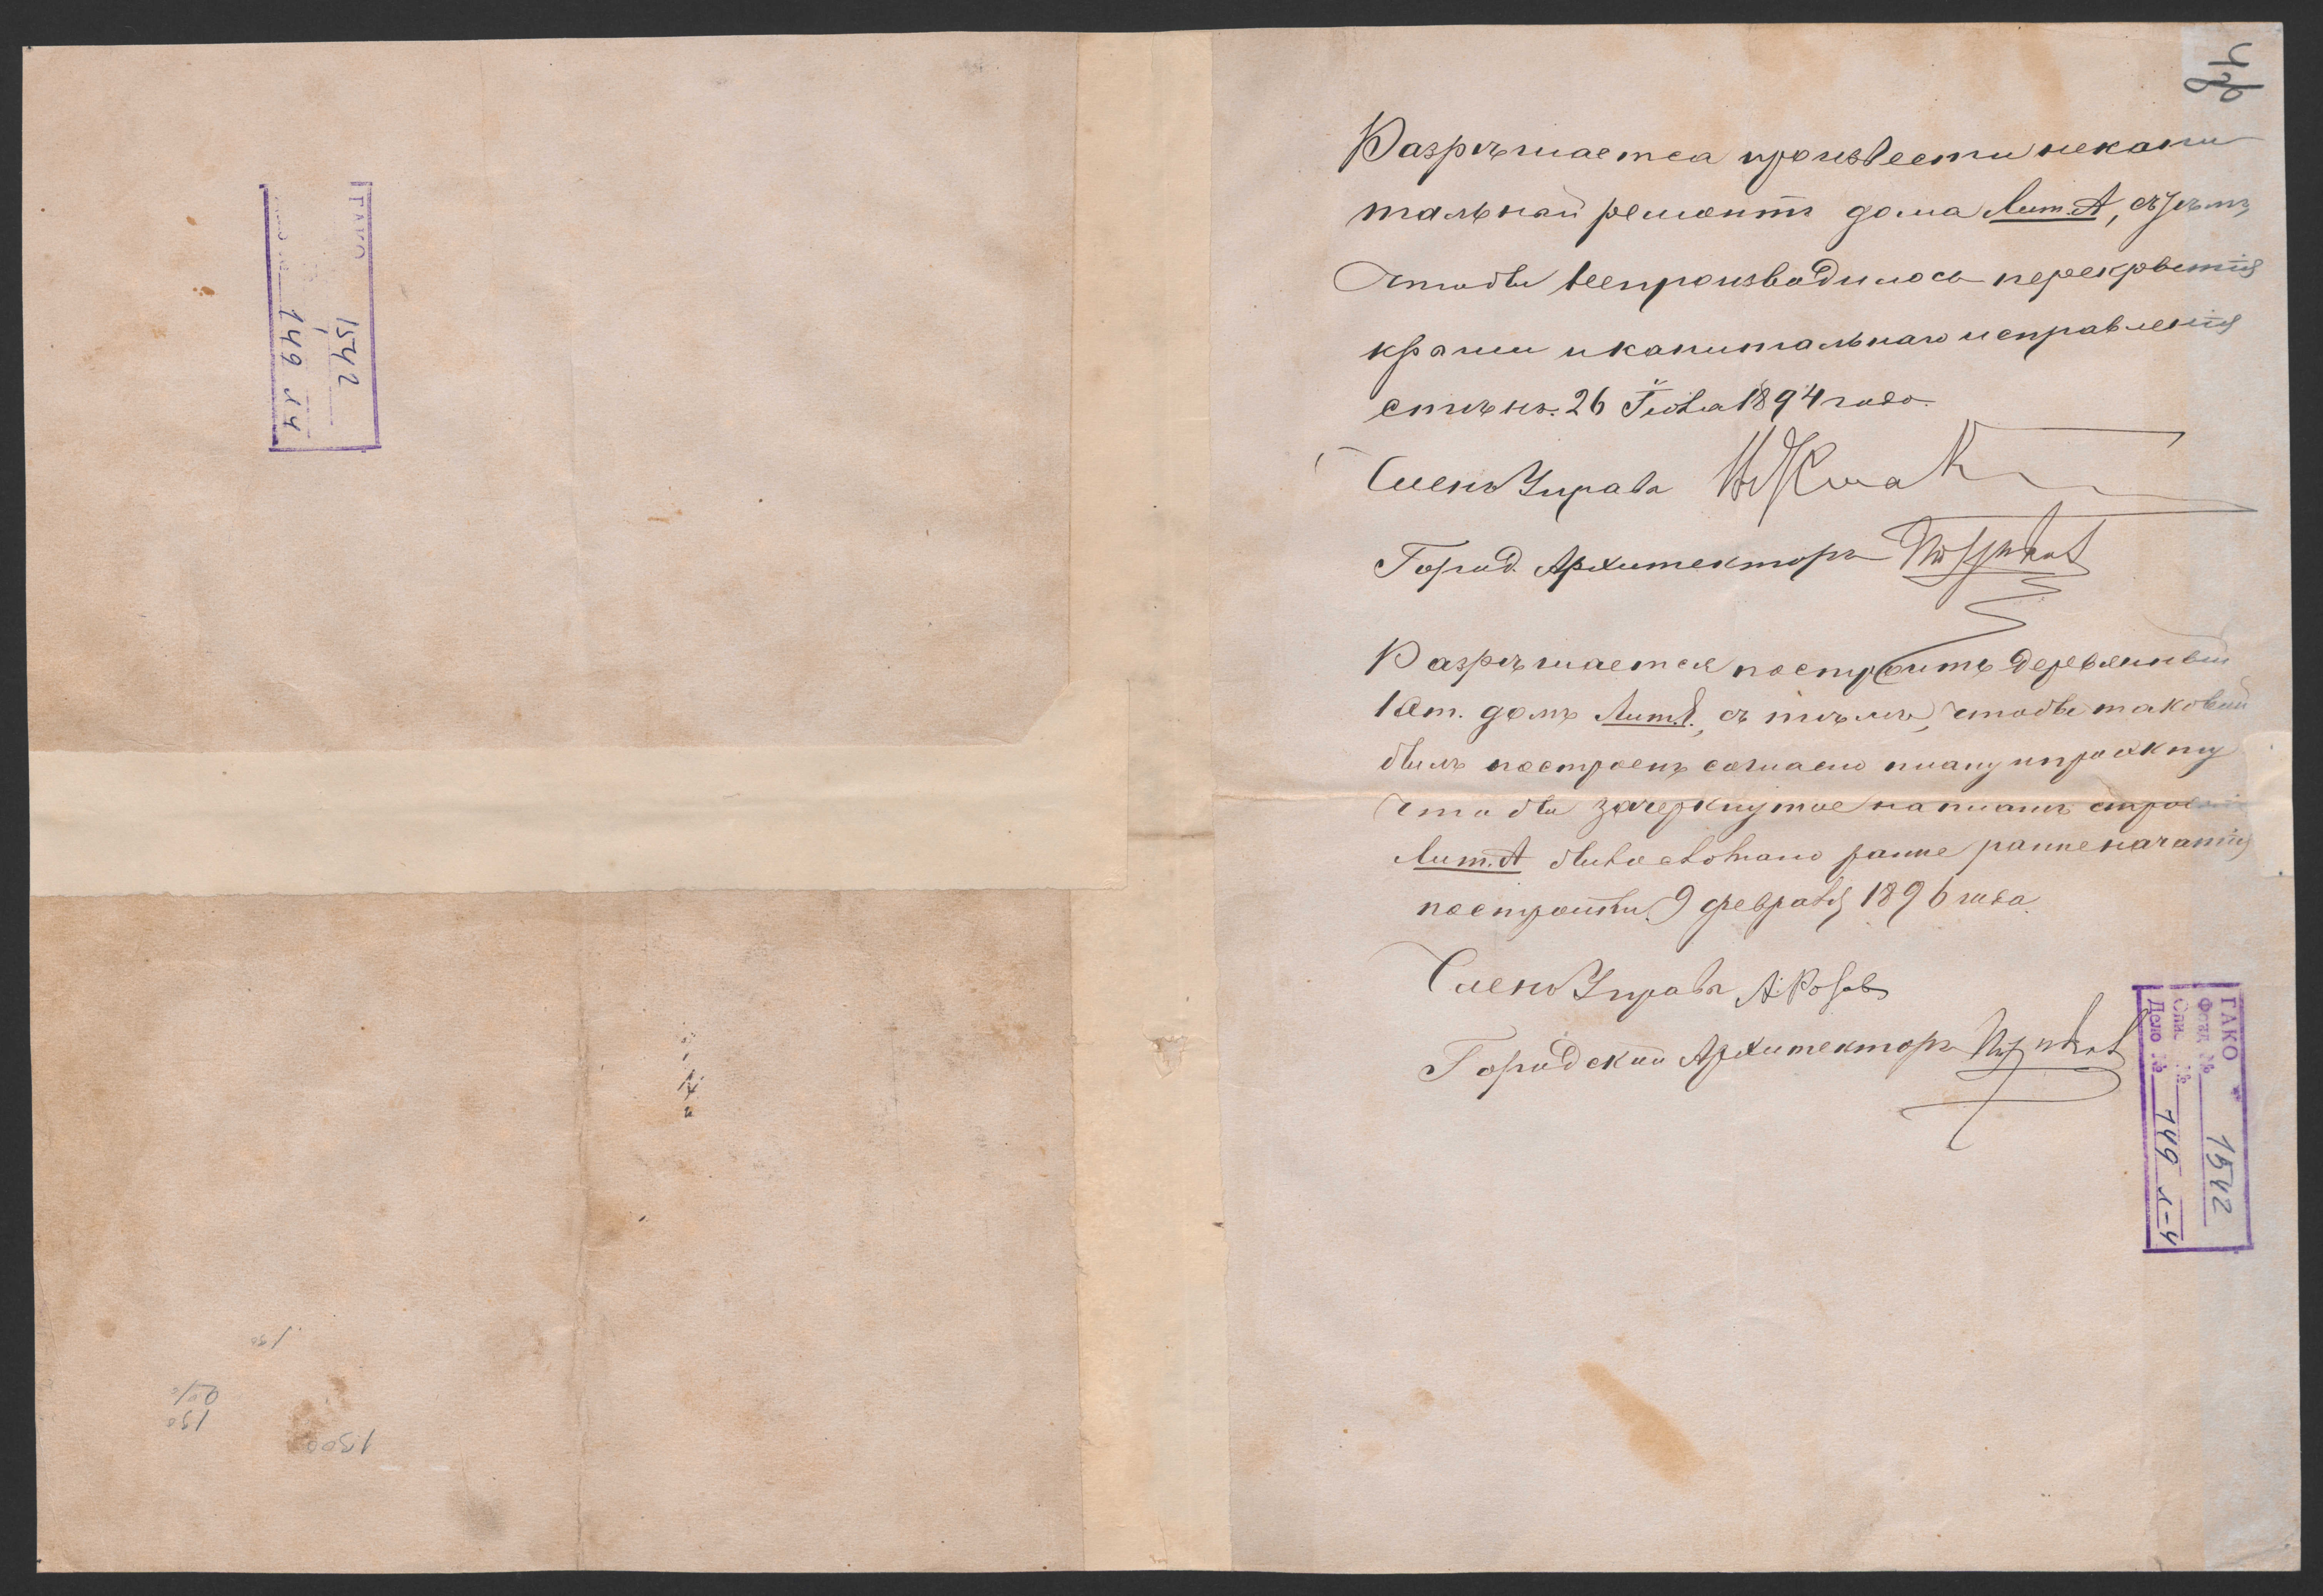 ГАКО
1542
149 л 4
190
190
1900
4об
Разрѣшается произвести некапи
тальный ремонтъ дома Лит. А, съ тѣмъ,
чтобы непроизводилось перекрытія
крыши икапитальнаго исправленія
стѣнъ. 26 Іюля 1894 года.
Членъ Управы
Город. Архитекторъ
Разрѣшается построить деревянный
1 эт. домъ Лит. , съ тѣмъ, чтобы таковый
былъ построенъ согласно плану ипроэкту
чтобы зачеркнутое на планѣ строеніе
Лит. А было сломано ранѣе ранѣе начатія
постройки. 9 февраля 1896 года.
Членъ Управы А. Розов
Городской Архитекторъ
ГАКО
Фонд № 1542
Опи. №
Дело № 149 л-4